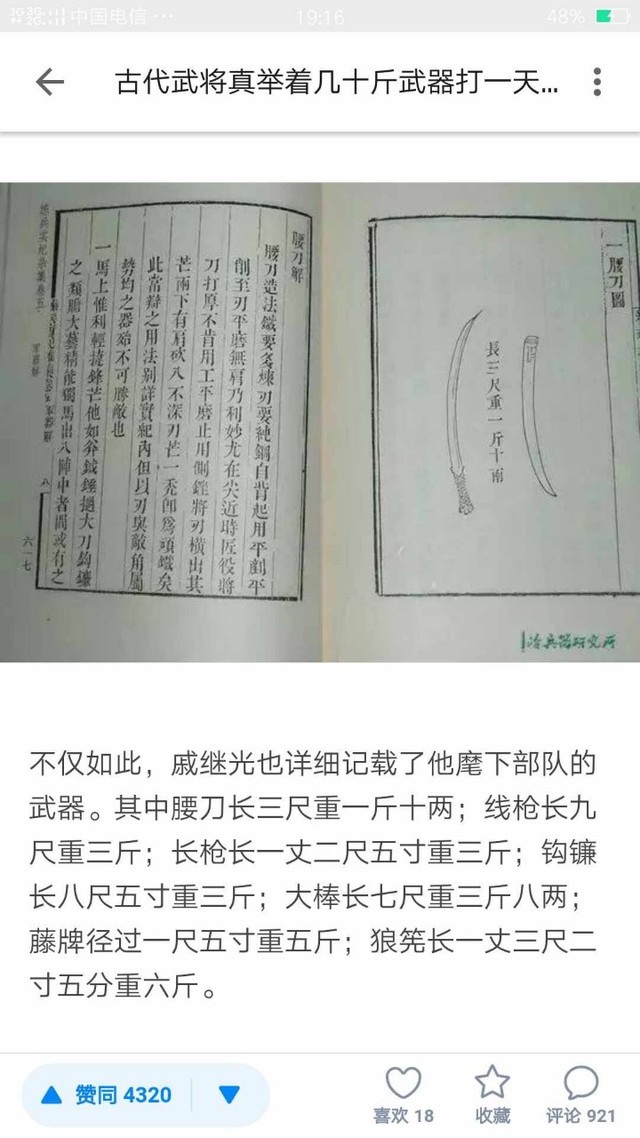 中国电信
19:16
48%
古代武将真举着几十斤武器打一天...
一腰刀圖
長三尺重一斤十兩
腰刀解
腰刀造法鐵要多煉刃要純鋼自背起用平剷平
削至刃平磨無肩乃利妙尤在尖近時匠役將
刀打厚不肯用工平磨止用側銼將刃橫出其
芒兩下有肩砍入不深刃芒一禿卽為頑鐵矣
此當辯之用法别詳實紀內但以刃與敵角屬
勢均之器殆不可勝敵也
一馬上惟利輕捷鋒芒他如斧鉞錘撾大刀鉤鐮
之類膽大藝精能獨馬出入陣中者間或有之
六一七
冷兵器研究所
不仅如此，戚继光也详细记载了他麾下部队的
武器。其中腰刀长三尺重一斤十两；线枪长九
尺重三斤；长枪长一丈二尺五寸重三斤；钩镰
长八尺五寸重三斤；大棒长七尺重三斤八两；
藤牌径过一尺五寸重五斤；狼筅长一丈三尺二
寸五分重六斤。
赞同 4320
喜欢 18
收藏
评论 921